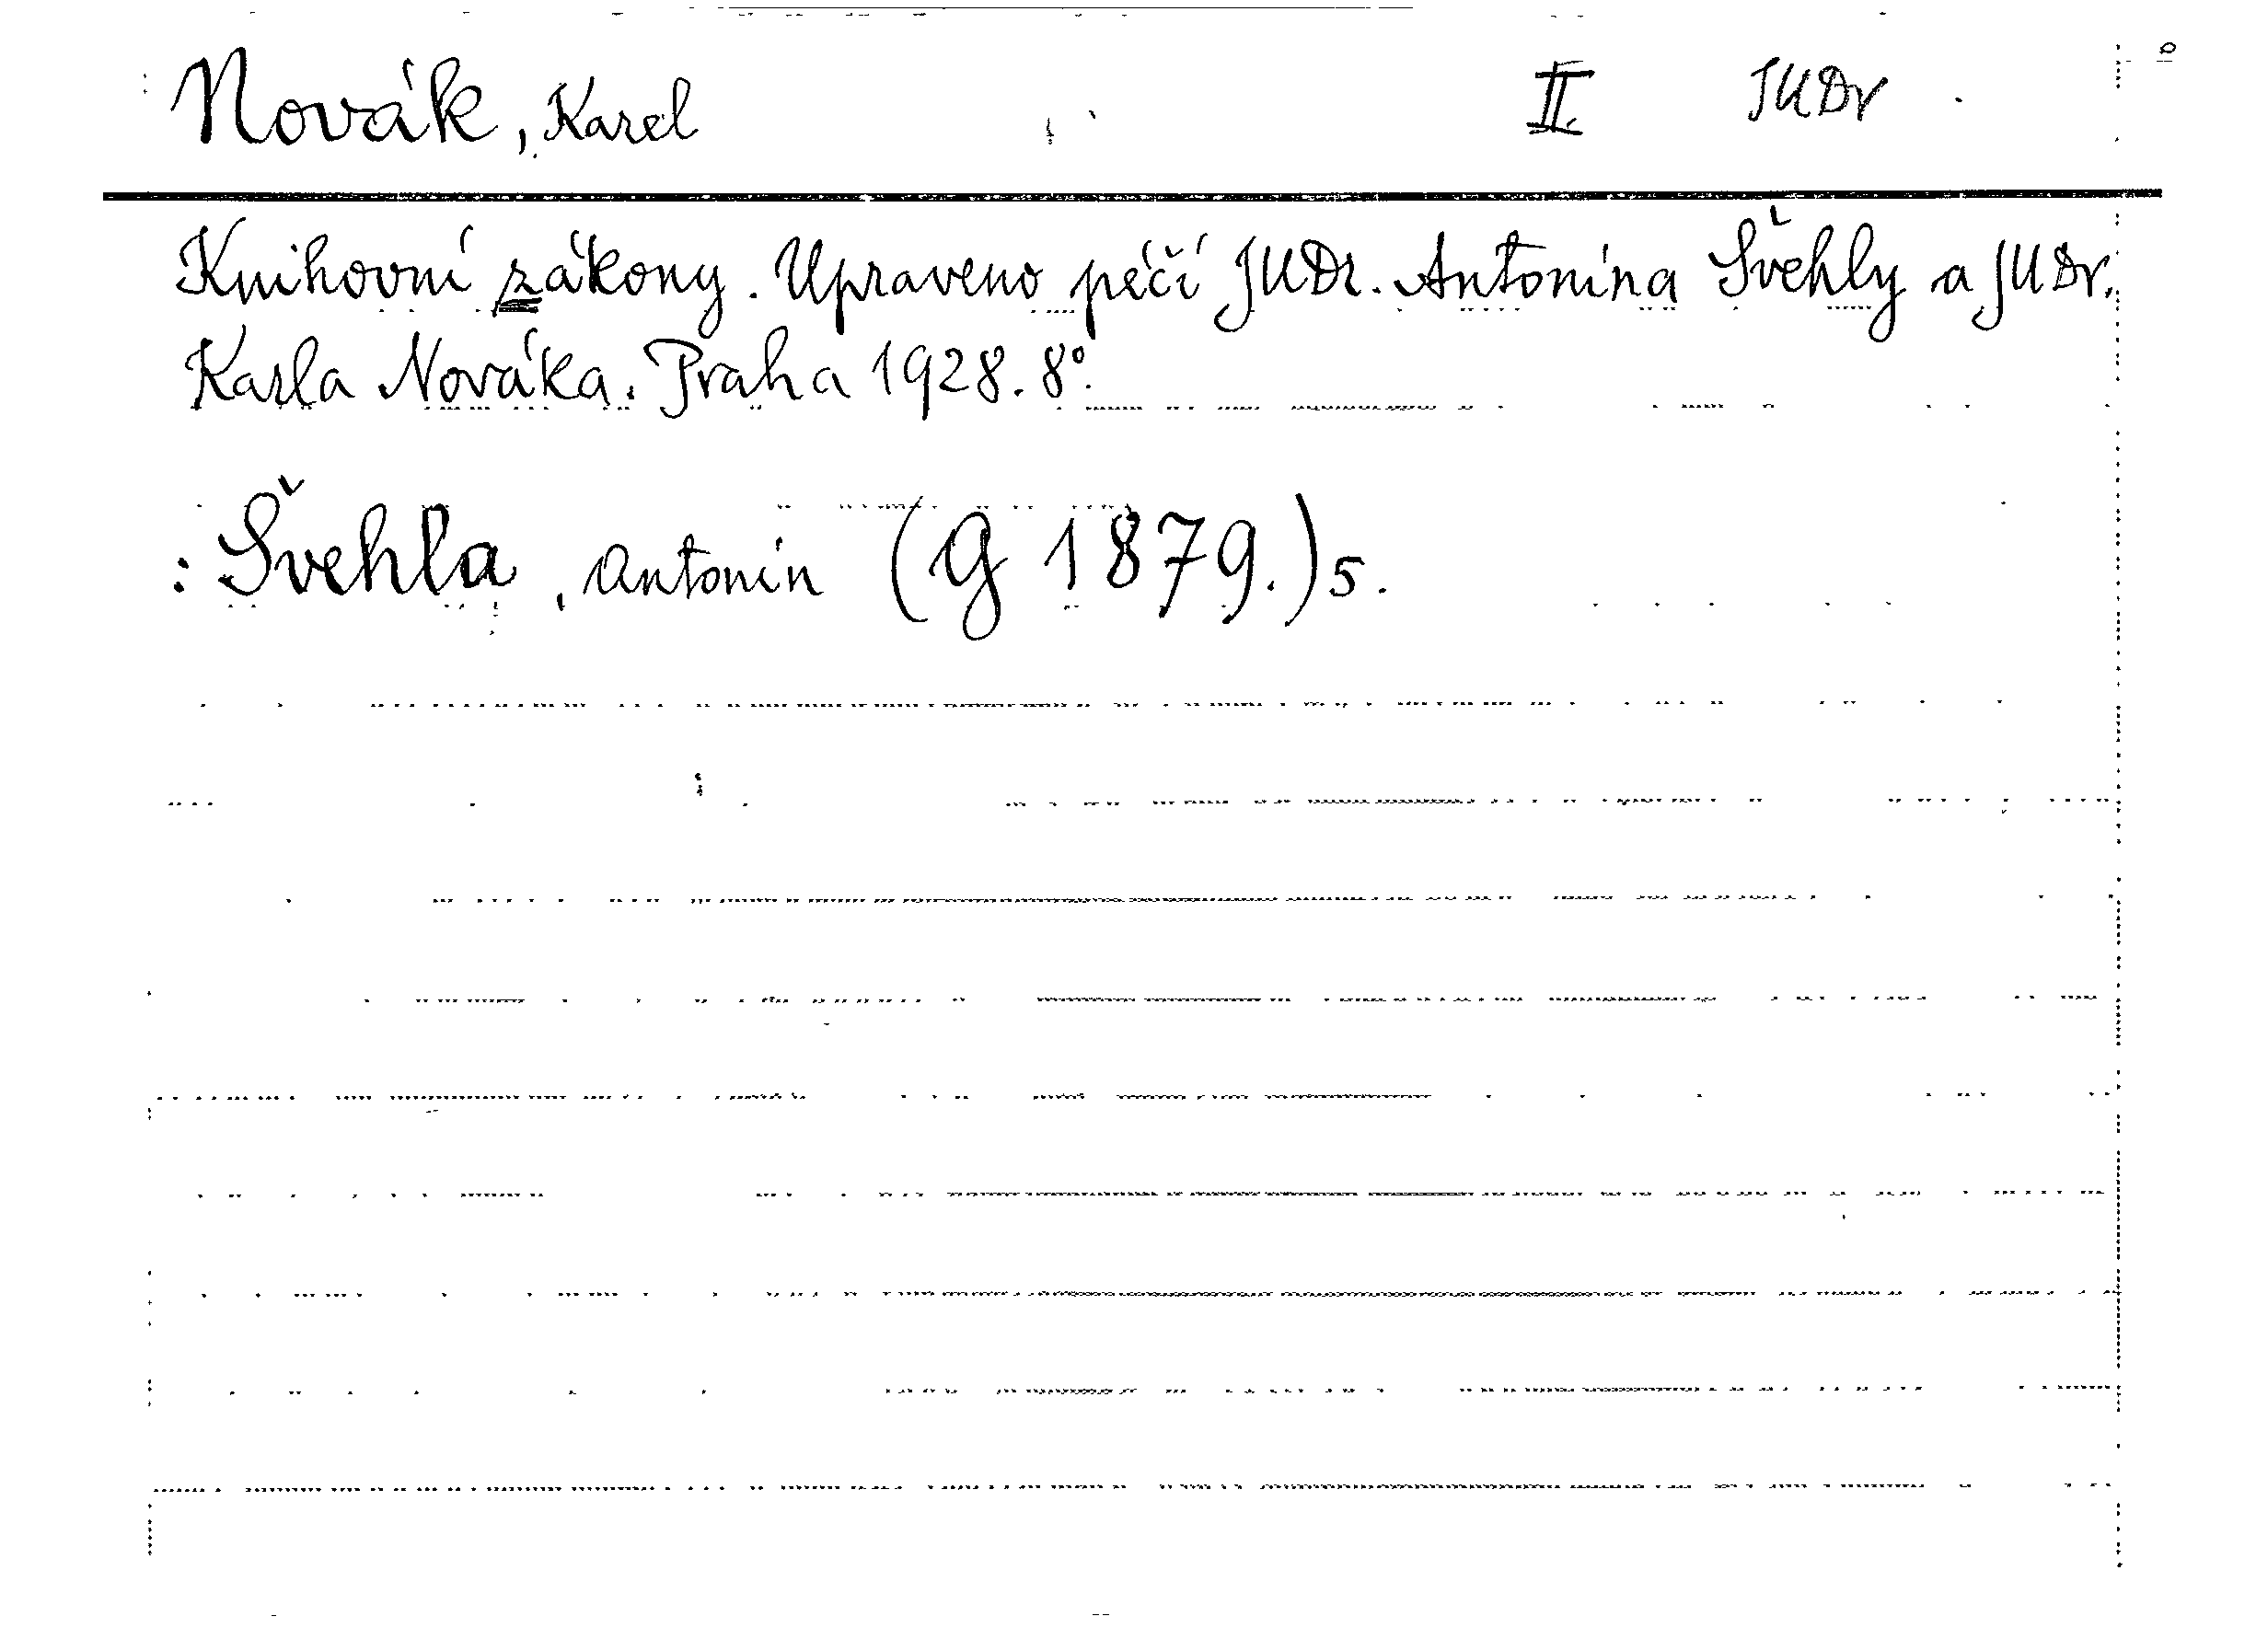 Novák, Karel II. JUDr
Knihovní zákony. Upraveno péčí JUDr. Antonína Švehly a JUDr.
Karla Nováka. Praha 1928. 8°.
: Švehla, Antonín (G 1879.) 5.